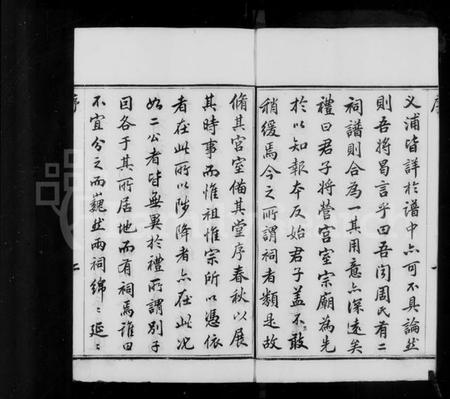 序
义浦皆詳於譜中亦可不具論然
則吾將曷言乎曰吾闵周氏有二
祠譜則合為一其用意亦深遠矣
禮曰君子將營宮室宗廟為先
於以知報本反始君子蓋不敢
稍緩焉今之所謂祠者類是故
脩其宮室備其堂序春秋以展
其時事而惟祖惟宗所以憑依
者在此所以陟降者亦在此况
如二公者皆無異於禮所謂別子
曰各于其所居地而有祠焉誰曰
不宜分之而巍然兩祠綿〻延〻
序
二